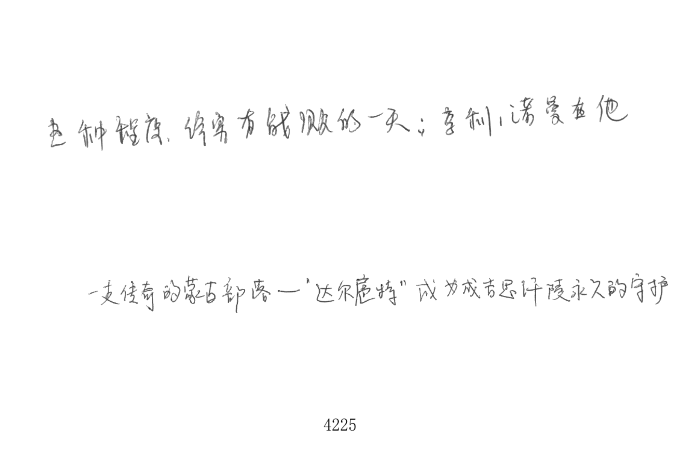 这种程度,终究有战败的一天;亨利,诺曼在他
一支传奇的蒙古部落—“达尔扈特”成为成吉思汗陵永久的守护
4225